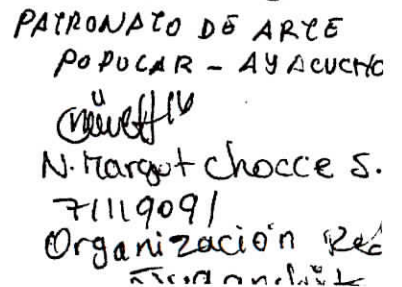 PATRONATO DE ARTE
POPULAR - AYACUCHO
N. Margot Chocce S.
71119091
Organización Red